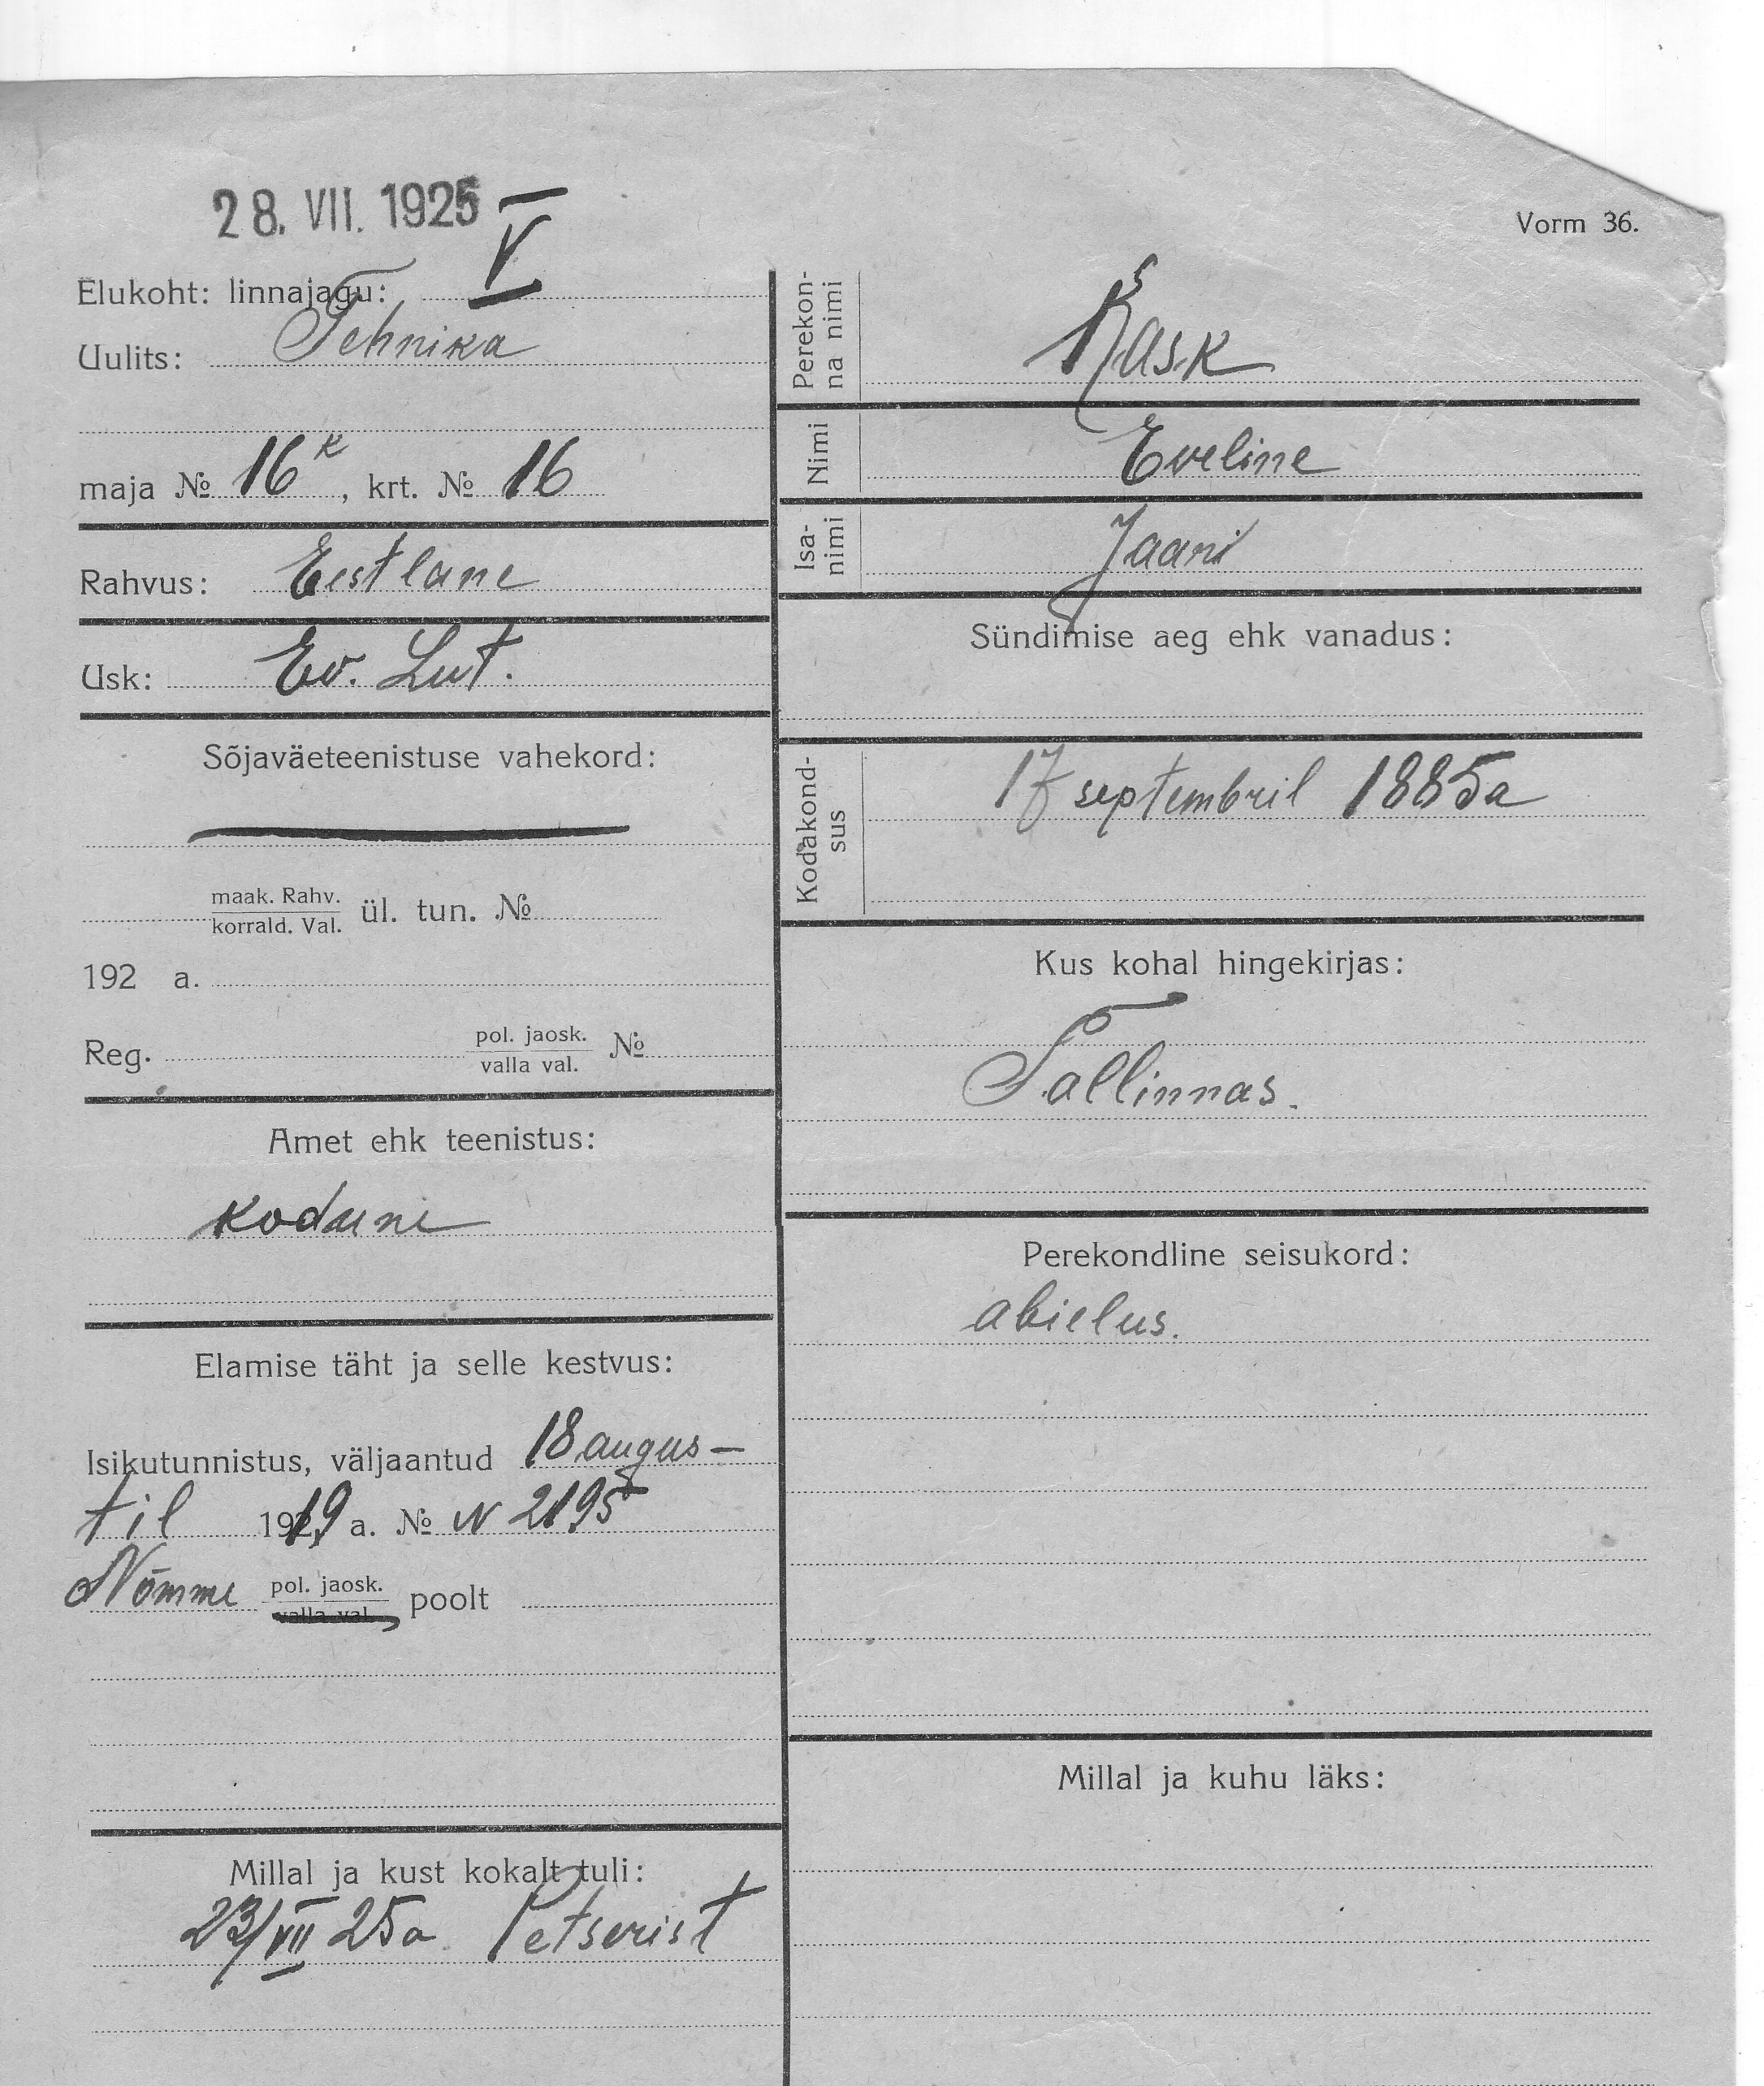 28. VII. 1925
Elukoht: linnajagu: V
Uulits: Tehnika
maja № 16 к, krt. № 16
Rahvus: Eestlane
Usk: Ev. Lut.
Sõjaväeteenistuse vahekord:
maak. Rahv.
korrald. Val. ül. tun. №
192 a.
Reg. pol. jaosk.
valla val. №
Amet ehk teenistus:
kodune
Elamise täht ja selle kestvus:
Isikutunnistus, väljaantud 18 augus-
til 1919 a. № N 2195
Nõmme pol. jaosk.
valla val. poolt
Millal ja kust kokalt tuli:
23/VII 25a. Petserist
Vorm 36.
Perekon-
na nimi Kask
Nimi Eveline
Isa-
nimi Jaani
Sündimise aeg ehk vanadus:
Kodakond-
sus 17 septembril 1885a
Kus kohal hingekirjas:
Tallinnas.
Perekondline seisukord:
abielus.
Millal ja kuhu läks: